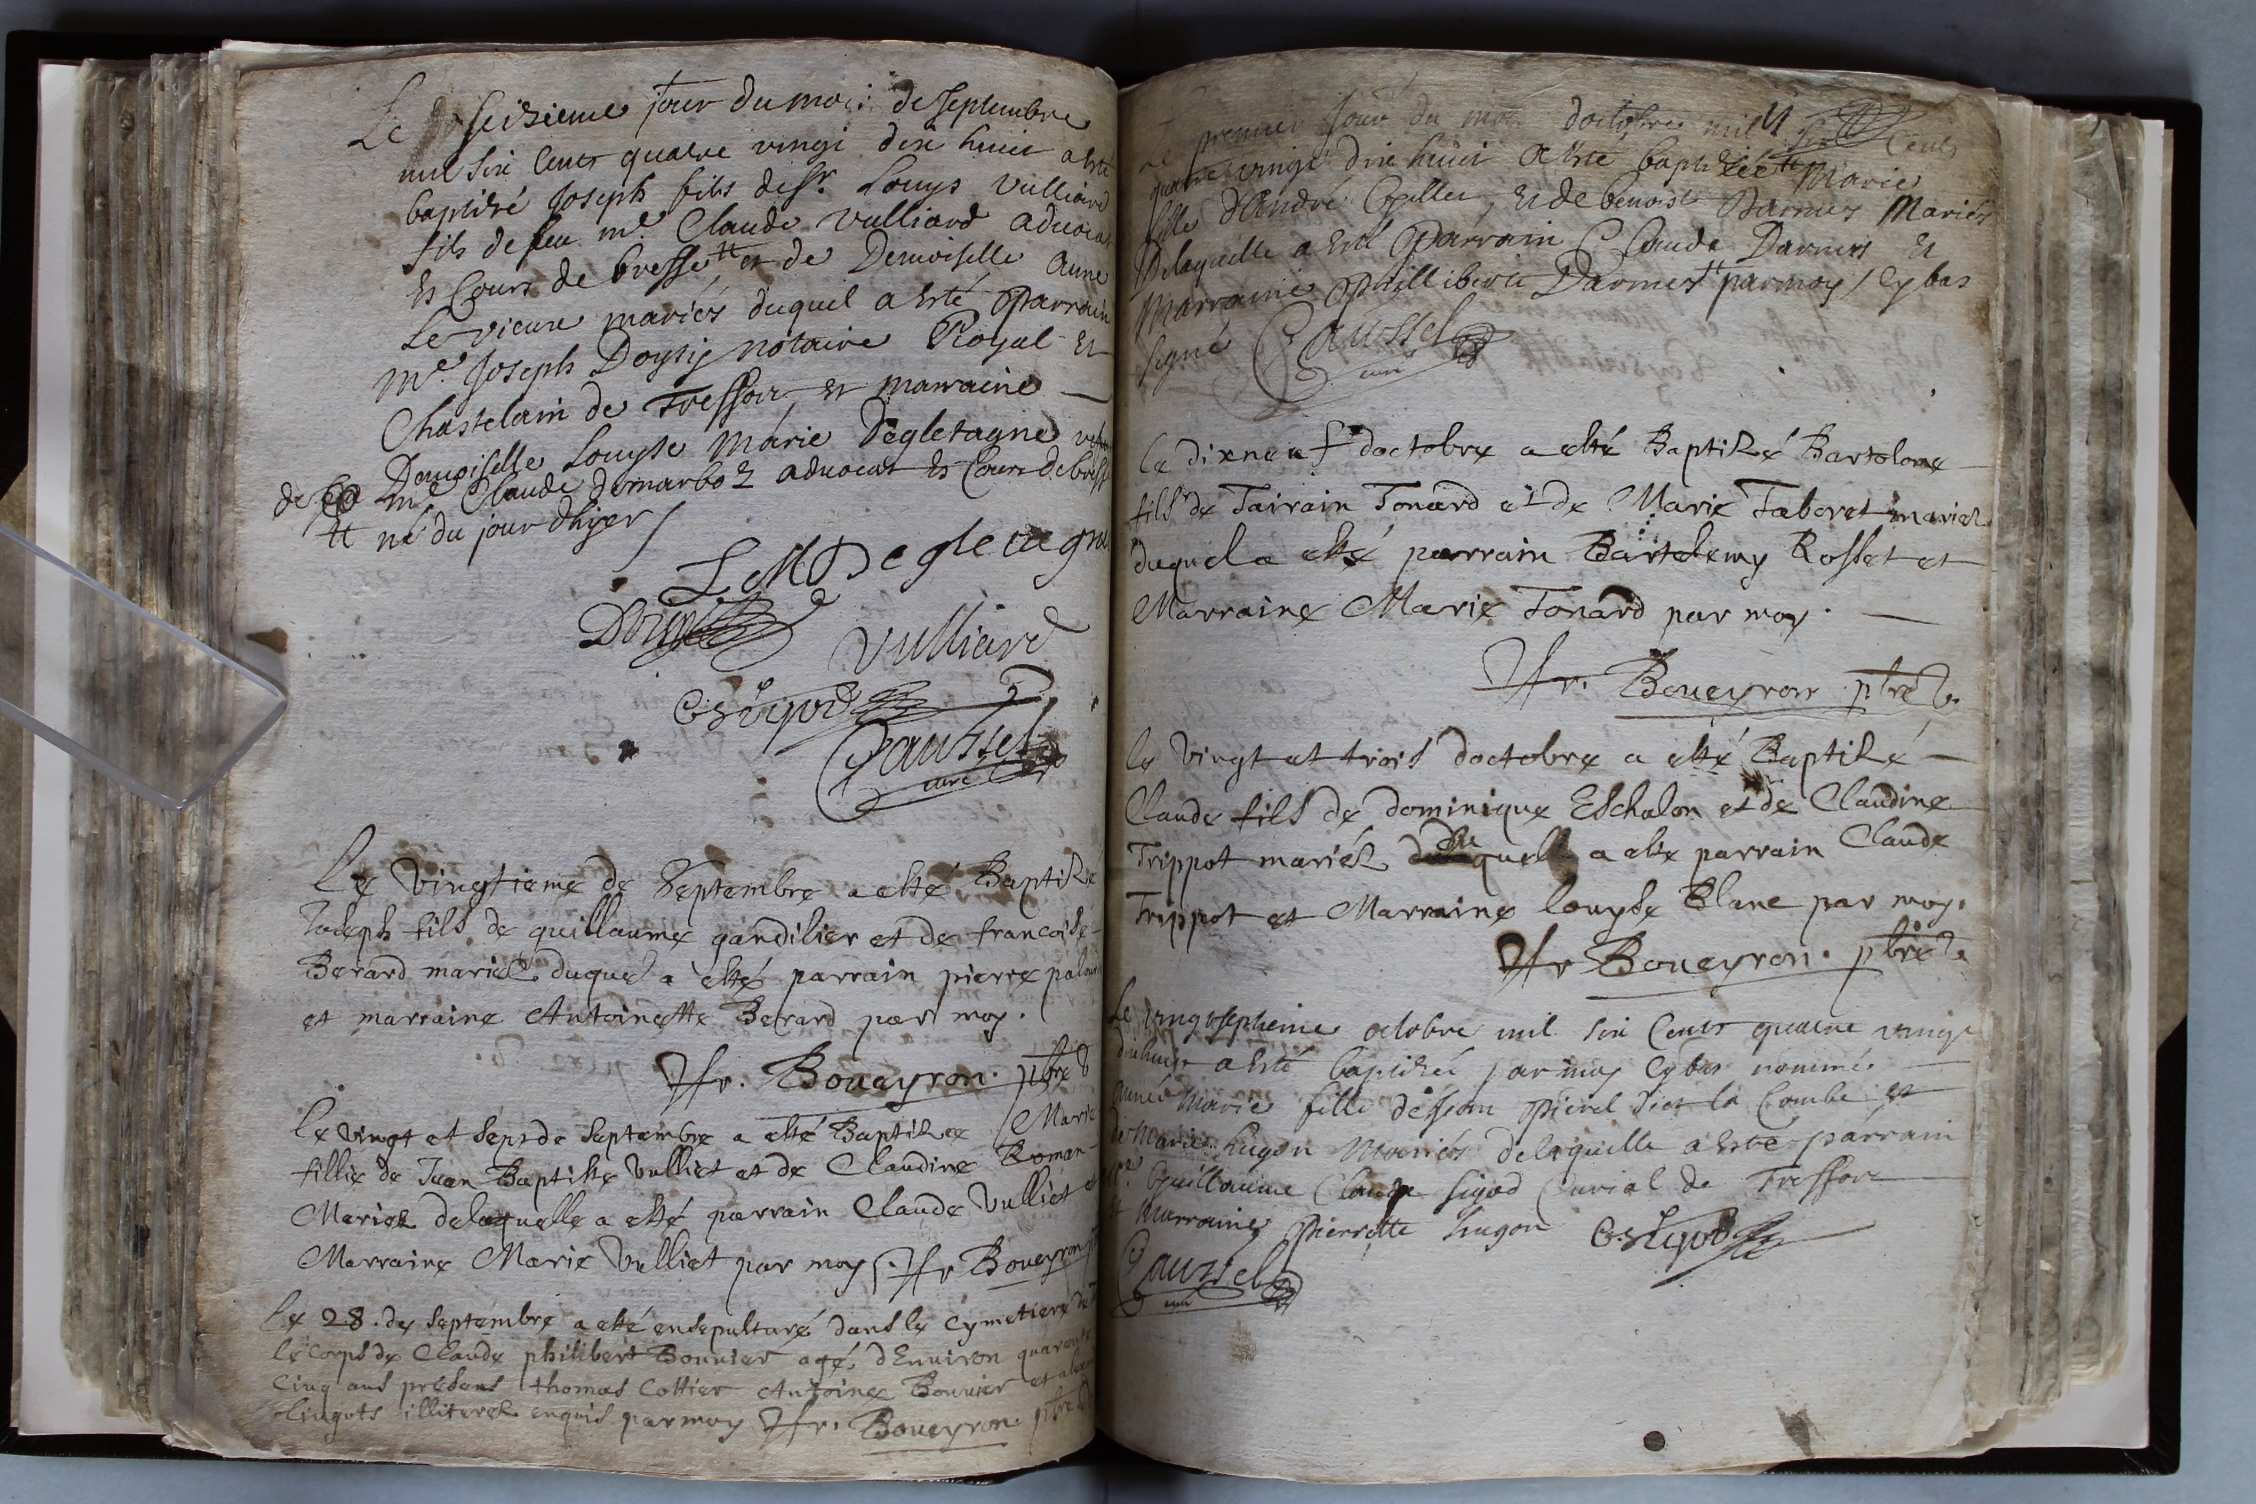 Le seizieme jour du mois de septembre
mil six cents quatre vingt dix huict a esté
baptizé Joseph fils de Sr. Louys Vulliard
fils de feu me. Claude Vulliard advocat
es Cours de bresse et de Demoiselle Anne
Levieux mariés duquel a esté parrain
Me. Joseph Notaire Royal et
Chastelain de Treffort et marraine
Demoiselle Louyse Marie Degletagne
de Me Claude demarboz advocat es Cours de bresse
né du jour d'hyer
L M Degletagne
Vulliard
G Sigod
Caussel
curé
Le vingtieme de Septembre a esté Baptizé
Joseph fils de guillaume gandilier et de francoise
Berard mariez duquel a esté parrain pierre
et marraine Antoinette Berard par moy.
Boueyron. pbre
Le vingt et sept de Septembre a esté Baptizee Marie
fillie de Jean Baptiste Vulliet et de Claudine Roman
Mariez delaquelle a esté parrain Claude Vulliet et
Marraine Marie Vulliet par moy. Boueyron
Le 28. de Septembre a esté ensepulturé dans le Cymetiere
le corps de Claude philibert Bouvier agé d'Environ quarante
Cinq ans presens thomas Cottier Antoine Bouvier et
illiterez enquis par moy Boueyron. pbre
Le premier Jour du mois d'octobre mil six Cents
quatre vingt dix huict a esté baptizée Marie
fille d'André et de benoiste Darmes Mariés
Delaquelle a esté parrain Claude Darmes et
Marraine Phillιberte Darmes par moy Cybas
signé Caussel
curé
Le dixneuf doctobre a esté Baptizé Bartolome
fils de Tonard et de Marie Taboret mariez
duquel a esté parrain Bartelemy Rosset et
Marraine Marie Tonard par moy.
Boueyron pbre
Le vingt et trois doctobre a esté Baptizé
Claude fils de dominique Eschalon et de Claudine
Trippot mariéz duquel a esté parrain Claude
Trippot et Marraine louyse Blanc par moy.
Boueyron. pbre
Le vingtseptieme octobre mil six Cents quatre vingt
dixhuict a esté baptizée par moy Cybas nommé
Marie fille de pierre dict la Combe et
de Marie hugon Mariés delaquelle a esté parrain
Guillaume Claude Sigod Curial de Treffort
et marraine pierrette hugon G Sigod
Caussel
curé